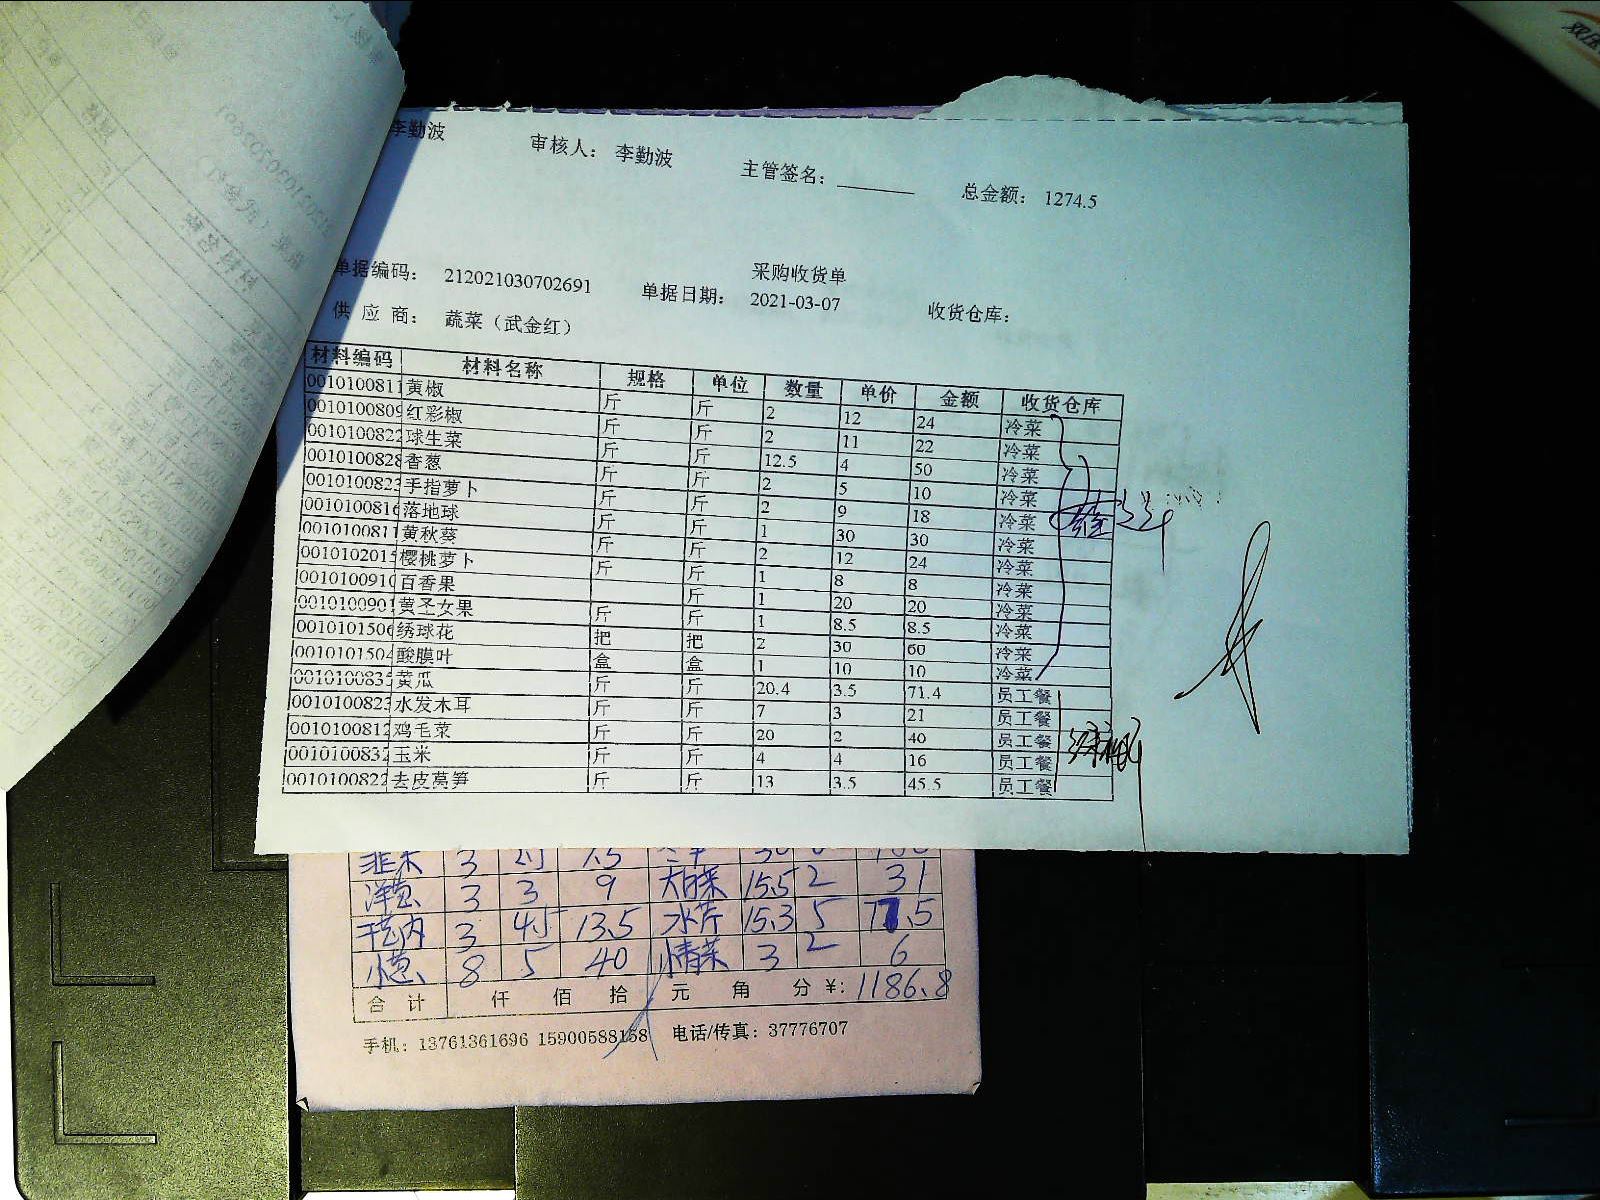 李勤波 审核人： 李勤波 主管签名： 总金额： 1274.5
采购收货单
单据编码： 212021030702691 单据日期： 2021-03-07 收货仓库：
供 应 商： 蔬菜（武金红）
材料编码 材料名称 规格 单位 数量 单价 金额 收货仓库
0010100811 黄椒 斤 斤 2 12 24 冷菜
0010100809 红彩椒 斤 斤 2 11 22 冷菜
0010100822 球生菜 斤 斤 12.5 4 50 冷菜
0010100828 香葱 斤 斤 2 5 10 冷菜
0010100823 手指萝卜 斤 斤 2 9 18 冷菜
0010100816 落地球 斤 斤 1 30 30 冷菜
0010100811 黄秋葵 斤 斤 2 12 24 冷菜
0010102015 樱桃萝卜 斤 斤 1 8 8 冷菜
0010100910 百香果 斤 1 20 20 冷菜
0010100901 黄圣女果 斤 斤 1 8.5 8.5 冷菜
0010101506 绣球花 把 把 2 30 60 冷菜
0010101504 酸膜叶 盒 盒 1 10 10 冷菜
001010083 黄瓜 斤 斤 20.4 3.5 71.4 员工餐
0010100823 水发木耳 斤 斤 7 3 21 员工餐
0010100812 鸡毛菜 斤 斤 20 2 40 员工餐
0010100832 玉米 斤 斤 4 4 16 员工餐
0010100822 去皮莴笋 斤 斤 13 3.5 45.5 员工餐
韭菜 3 2.5 7.5
洋葱 3 3 9 大白菜 15.5 2 31
3 4.5 13.5 水芹 15.3 5 .5
小葱 8 5 40 小青菜 3 2 6
合 计 仟 佰 拾 元 角 分 ¥: 1186.8
手机：13761361696 15900588158 电话/传真：37776707